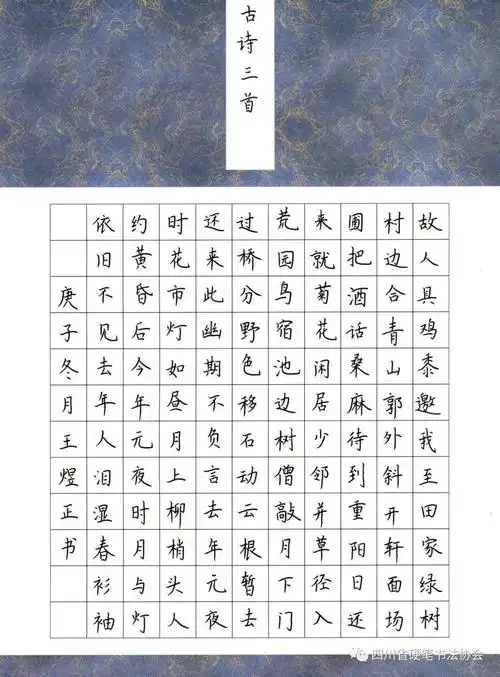 古诗三首
故人具鸡黍邀我至田家绿树
村边合青山郭外斜开轩面场
圃把酒话桑麻待到重阳日还
来就菊花闲居少邻并草径入
荒园鸟宿池边树僧敲月下门
过桥分野色移石动云根暂去
还来此幽期不负言去年元夜
时花市灯如昼月上柳梢头人
约黄昏后今年元夜时月与灯
依旧不见去年人泪湿春衫袖
庚子冬月王煜正书
四川省硬笔书法协会